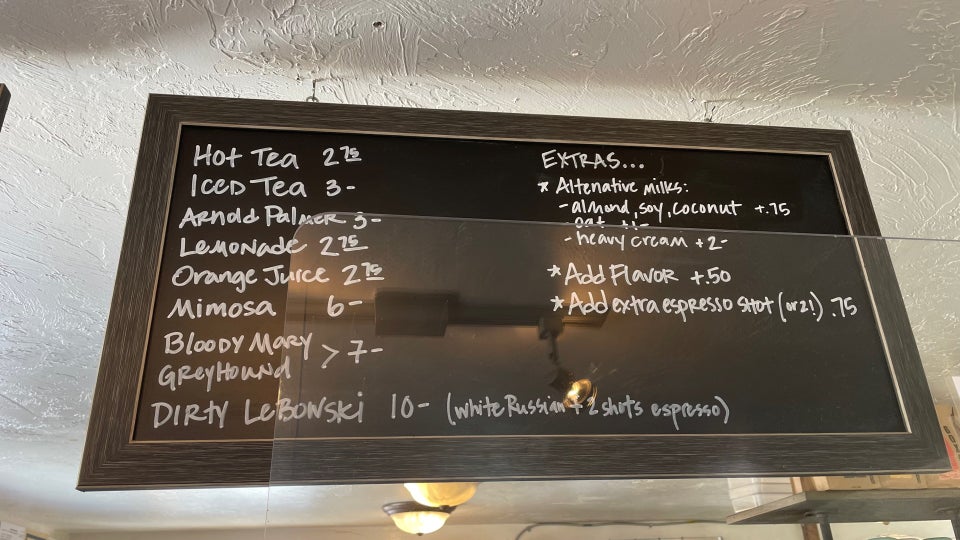 Hot Tea 2 75
Iced Tea 3-
Arnold Palmer 3-
Lemonade 2 75
Orange Juice 2 75
Mimosa 6-
Bloody Mary
Greyhound > 7-
Dirty Lebowski 10- (white Russian + 2 shots espresso)
EXTRAS...
* Altenative milks:
- almond, soy, coconut +.75
- oat +1-
- heavy cream +2-
* Add Flavor +.50
* Add extra espresso shot (or 2!) .75